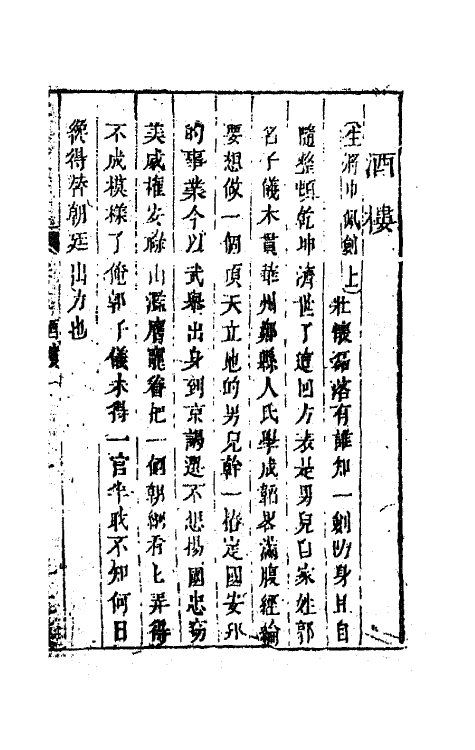 酒樓
(生將巾佩劍上)壯懷磊落有誰知一劍防身且自
隨整頓乾坤濟世了遭回方表是男兒自家姓郭
名子儀本貫華州鄭縣人氏學成韜畧滿腹經綸
要想做一個頂天立地的男兒幹一樁定國安邦
的事業今以武舉出身到京謁選不想楊國忠竊
美威權安祿山濫膺寵眷把一個朝綱看上弄得
不成模樣了俺郭子儀未得一官半職不知何日
纔得替朝廷出力也
酒樓